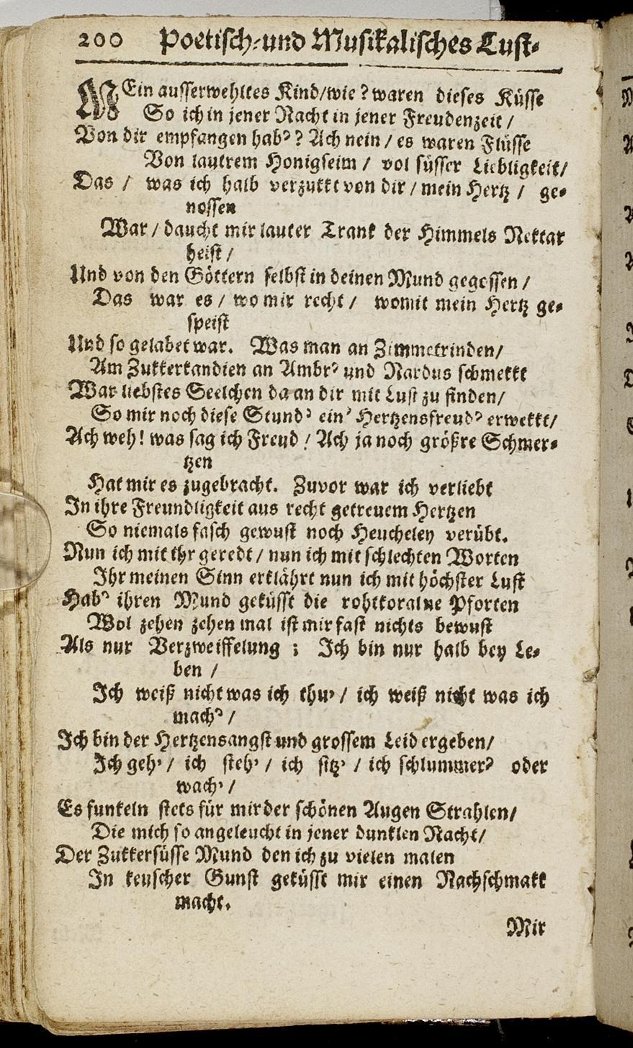 200 Poetisch-und Musikalisches Lust-
MEin ausserwehltes Kind/wie? waren dieses Küsse
So ich in jener Nacht in jener Freudenzeit /
Von dir empfangen hab'? Ach nein / es waren Flüsse
Von lautrem Honigseim / vol süsser Liebligkeit/
Das / was ich halb verzukkt von dir / mein Hertz / ge-
nossen
War / daucht mir lauter Trank der Himmels Nektar
heist /
Und von den Göttern selbst in deinen Mund gegossen /
Das war es / wo mir recht / womit mein Hertz ge-
speist
Und so gelabet war. Was man an Zimmetrinden/
Am Zukkerkandien an Ambr' und Nardus schmekkt
War liebstes Seelchen da an dir mit Lust zu finden/
So mir noch diese Stund' ein' Hertzensfreud' erwekkt/
Ach weh! was sag ich Freud / Ach ja noch größre Schmer-
tzen
Hat mir es zugebracht. Zuvor war ich verliebt
In ihre Freundligkeit aus recht getreuem Hertzen
So niemals fasch gewust noch Heucheley verübt.
Nun ich mit ihr geredt / nun ich mit schlechten Worten
Ihr meinen Sinn erklährt nun ich mit höchster Lust
Hab' ihren Mund geküsst die rohtkoralne Pforten
Wol zehen zehen mal ist mir fast nichts bewust
Als nur Verzweiffelung ; Ich bin nur halb bey Le-
ben /
Ich weiß nicht was ich thu' / ich weiß nicht was ich
mach' /
Ich bin der Hertzensangst und grossem Leid ergeben/
Ich geh' / ich steh' / ich sitz' / ich schlummer' oder
wach' /
Es funkeln stets für mir der schönen Augen Strahlen/
Die mich so angeleucht in jener dunklen Nacht/
Der Zukkersüsse Mund den ich zu vielen malen
In keuscher Gunst geküsst mir einen Nachschmakk
macht.
Mir